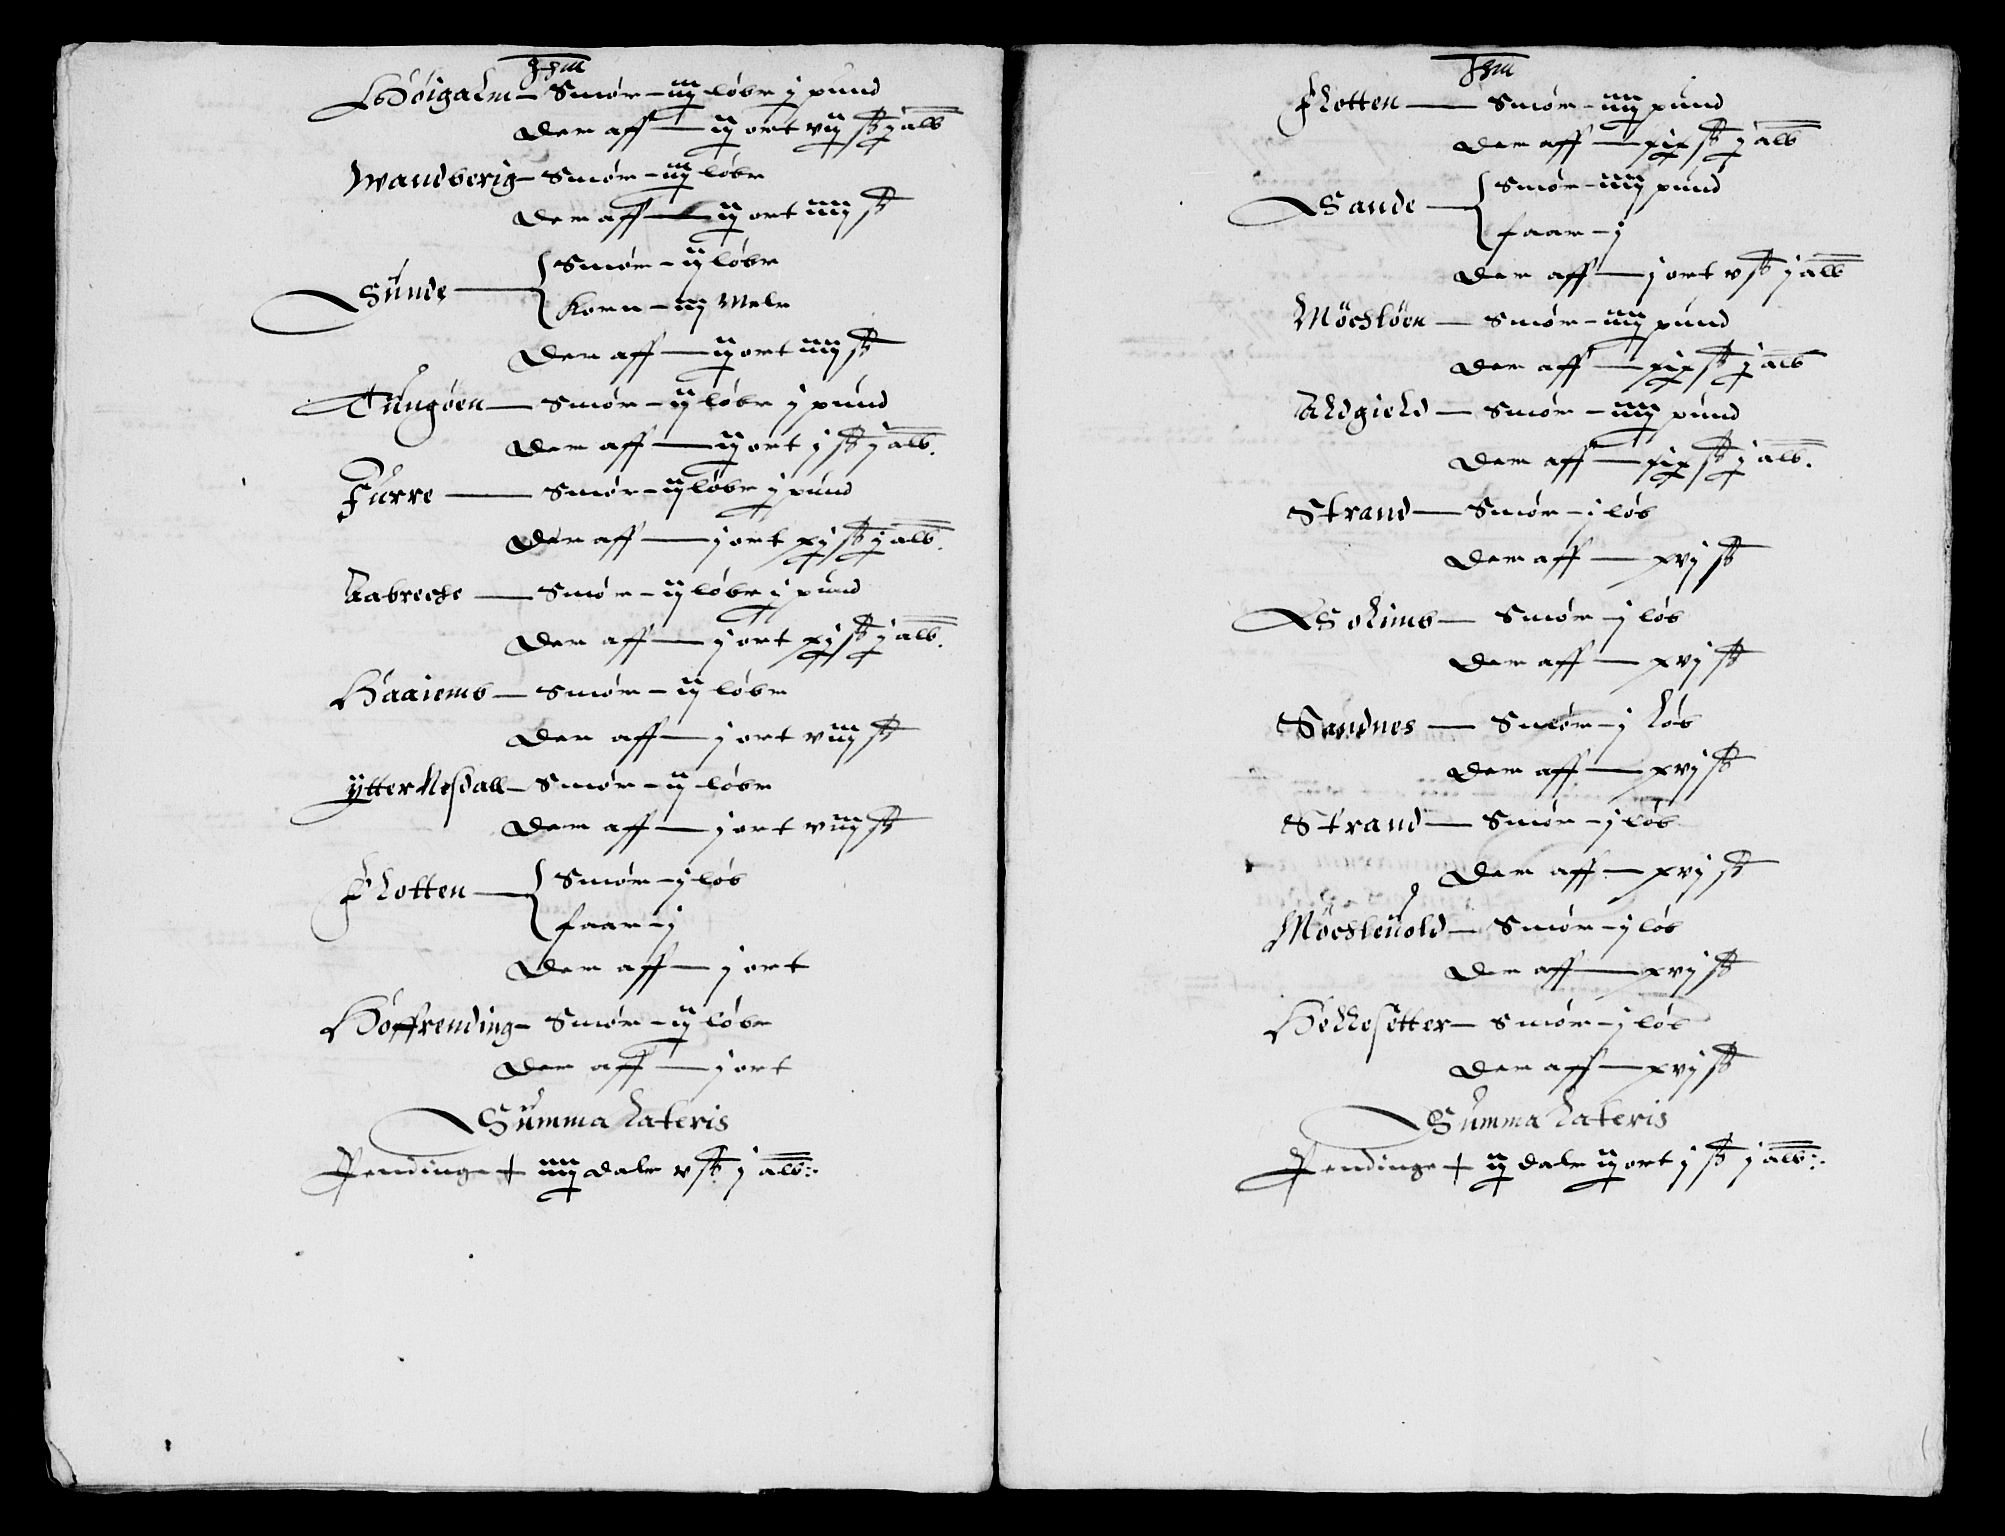 Höigalm — Smór – iij lóbe j pund
Der aff — ij ort vij ß j alb
Wandberig — Smór – iij lóbe
Der aff — ij ort iiij ß
Sunde — Smór – ij lóbe
Korn – iij Mele
Der aff — ij ort iiij ß
Tungöen — Smór – ij lóbe j pund
Der aff — ij ort j ß j alb.
Furre — Smór – ij lóbe j pund
Der aff — j ort xj ß j alb.
Aabrecke — Smór – ij lóbe j pund
Der aff — j ort xj ß j alb.
Haaiemb — Smór – ij lóbe
Der aff — j ort viij ß
Ytter Nesdall — Smór – ij lóbe
Der aff — j ort viij ß
Flotten — Smór – j lób
faar – ij
Der aff — j ort
Höffrending — Smór – ij lóbe
Der aff — j ort
Summa Lateris
Pendinge + iiij dale v ß j alb:.
Flotten — Smór – iiij pund
Der aff — xix ß j alb
Sande — Smór – iiij pund
faar – j
Der aff — j ort v ß j alb
Möcklöen — Smór – iiij pund
Der aff — xix ß j alb
Aldgield — Smór – iiij pund
Der aff — xix ß j alb.
Strand — Smór – j lób
Der aff — xvj ß
Solimb — Smór – j lób
Der aff — xvj ß
Sandnes — Smór – j lób
Der aff — xvj ß
Strand — Smór – j lób
Der aff — xvj ß
Möckleuold — Smór – j lób
Der aff — xvj ß
Hellesetter — Smór – j lób
Der aff — xvj ß
Summa Lateris
Pendinge + ij dale ij ort j ß j alb:.